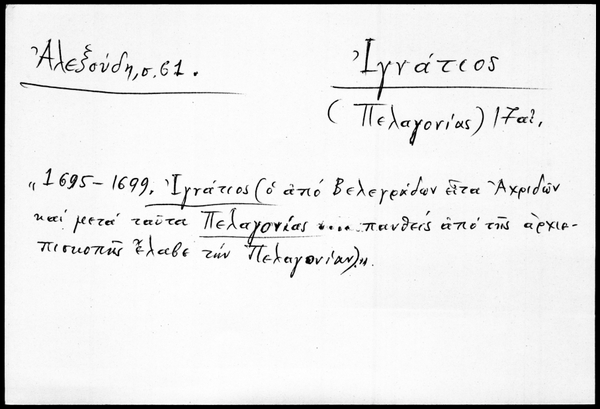 Ἀλεξούδη, σ. 61.
Ἰγνάτιος
(Πελαγονίας) 17 αἰ.
„1695-1699. Ἰγνάτιος (ὁ ἀπό Βελεγράδων εἶτα Ἀχριδῶν
καί μετά ταῦτα Πελαγονίας .... παυθείς ἀπό τῆς ἀρχιε-
πισκοπῆς ἔλαβε τήν Πελαγονίαν)."